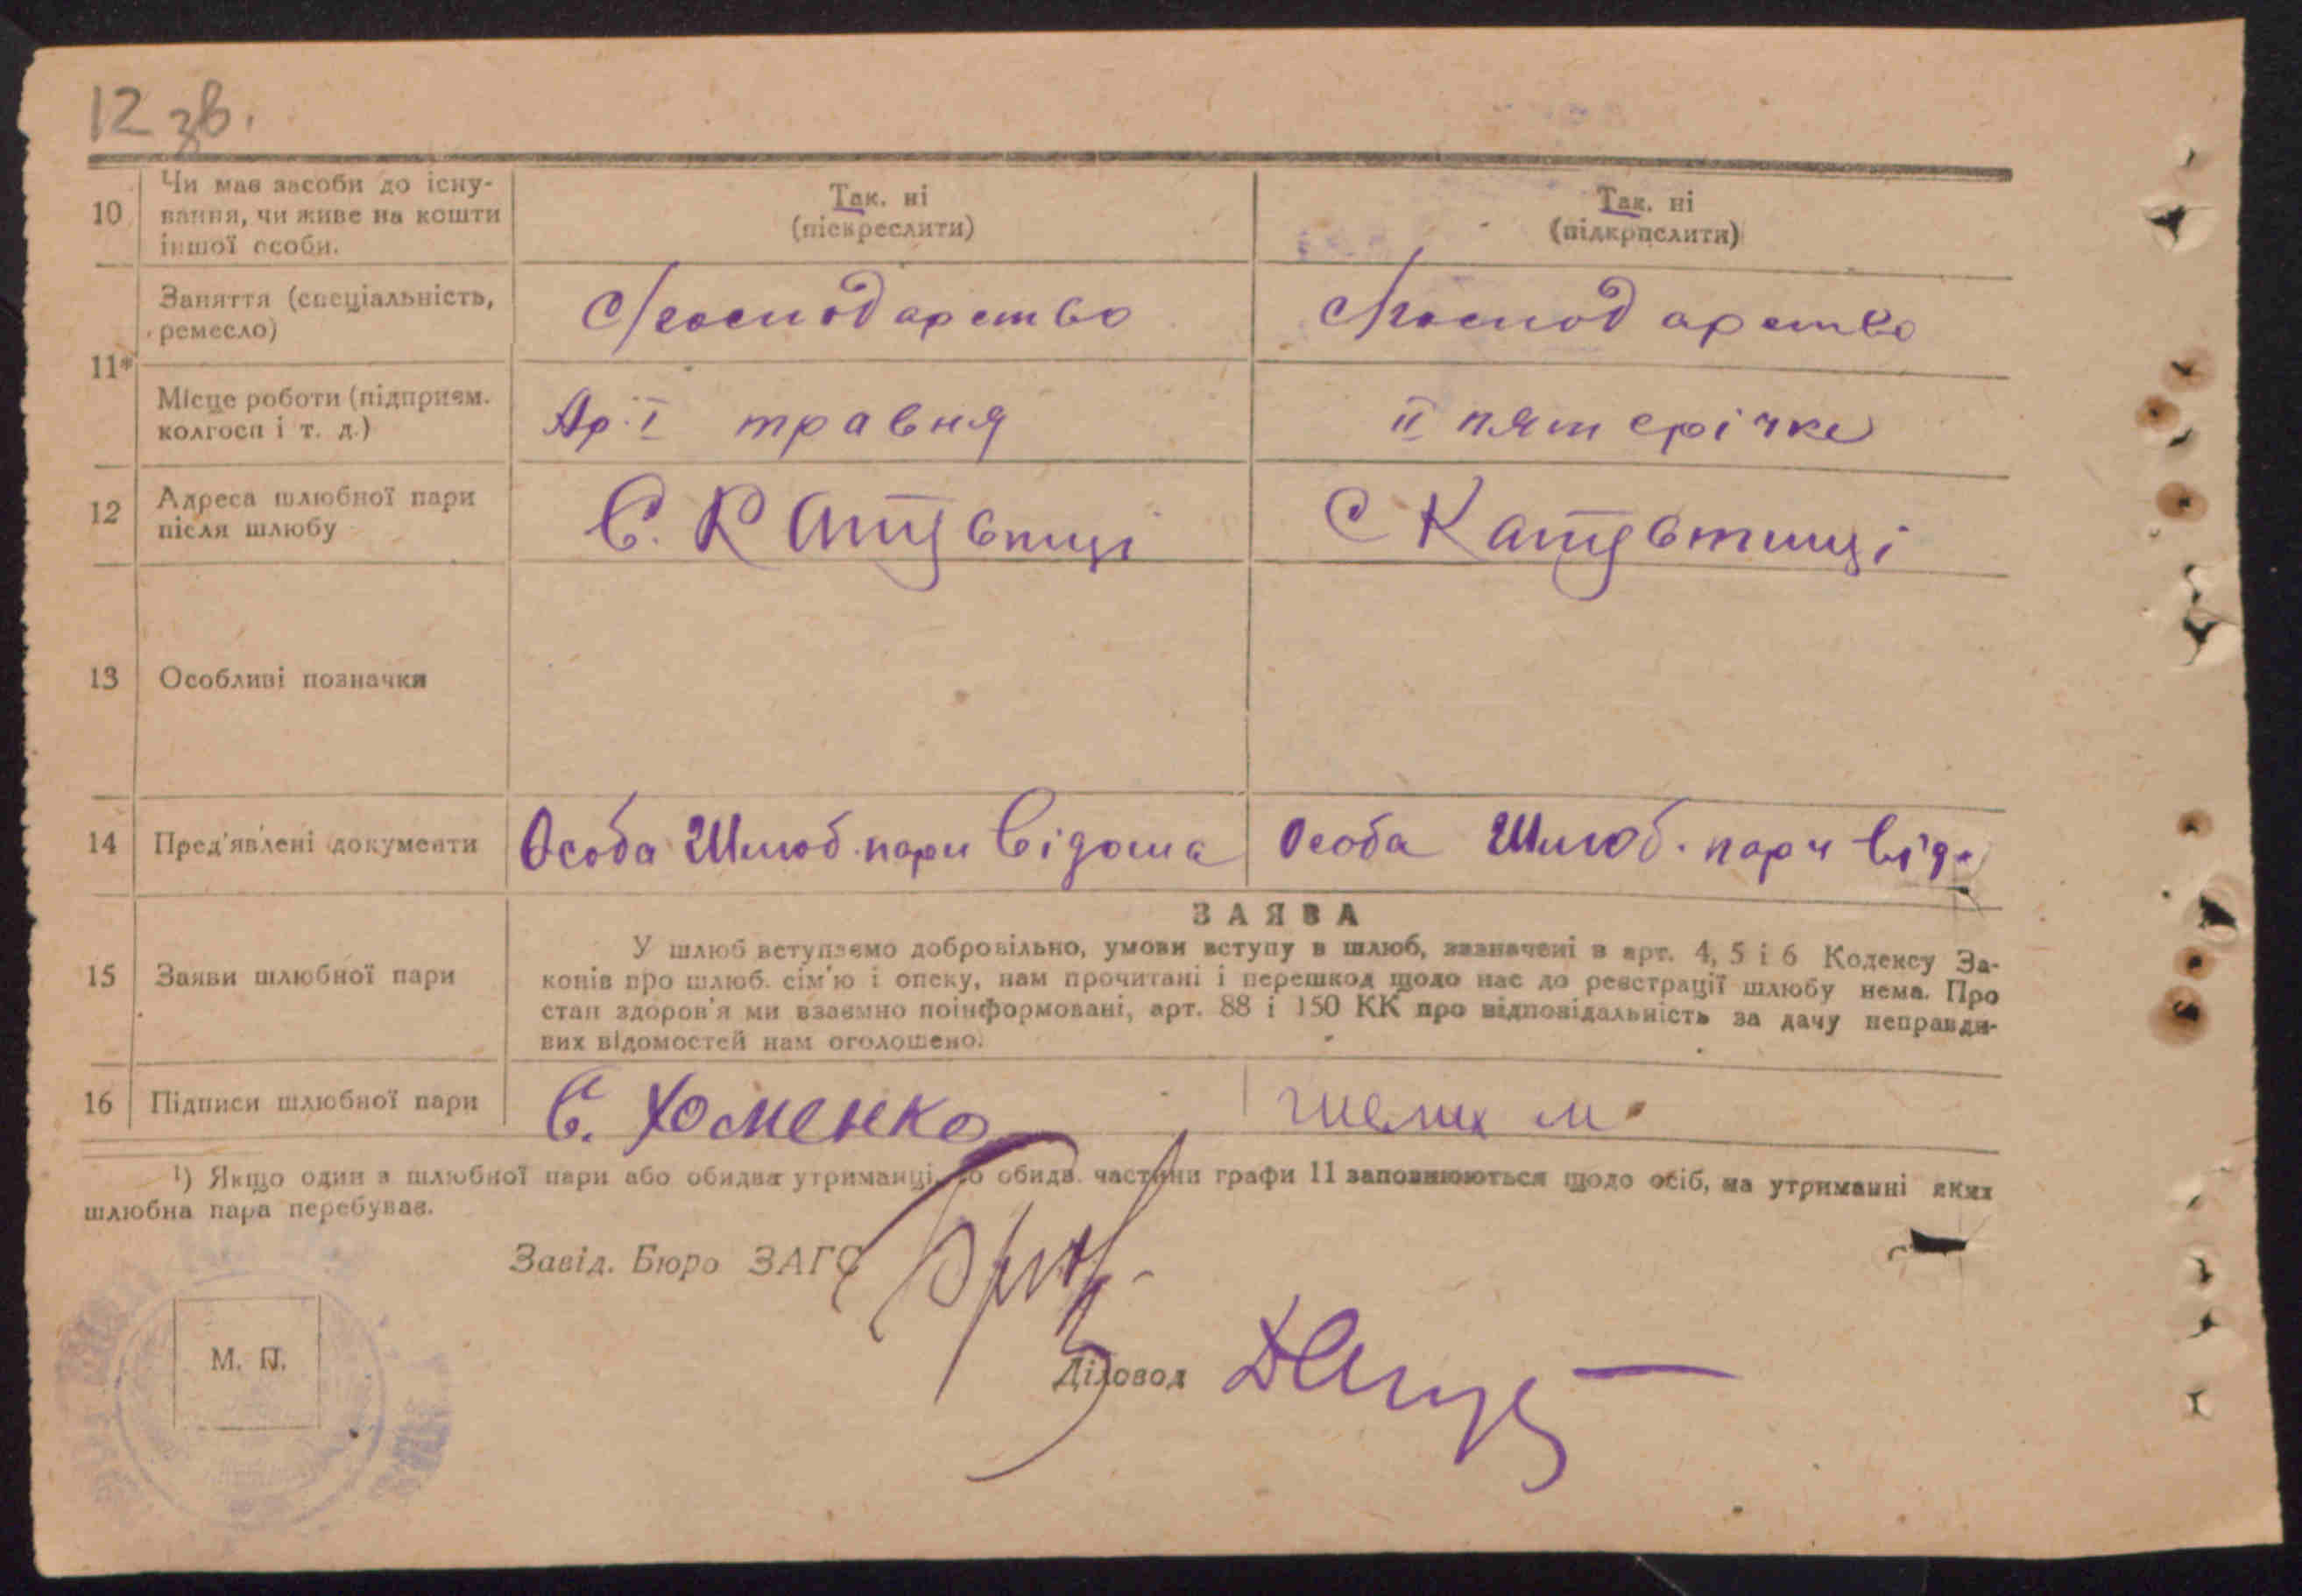 12 зв.
10 Чи має засоби до існу-
вання, чи живе на кошти
іншої особи.
Так. ні
(піскреслити)
Так. ні
(підкрпслити)
11*
Заняття (спеціальність,
ремесло)
С/господарство
С/господарство
Місце роботи (підприєм.
колгосп і т. д.)
Ар. І травня
ІІ пятерічке
12 Адреса шлюбної пари
після шлюбу
С.
С
13 Особливі позначки
14 Пред'явлені документи
Особа Шлюб. пари відома
Особа Шлюб. пари відо
15 Заяви шлюбної пари
ЗАЯВА
У шлюб вступаємо добровільно, умови вступу в шлюб, зазначені в арт. 4, 5 і 6 Кодексу За-
конів про шлюб. сім'ю і опеку, нам прочитані і перешкод щодо нас до реєстрації шлюбу нема. Про
стан здоров'я ми взаємно поінформовані, арт. 88 і 150 КК про відповідальність за дачу неправди-
вих відомостей нам оголошено.
16 Підписи шлюбної пари
Є. Хоменко
¹) Якщо один з шлюбної пари або обидва утриманці, то обидв. частини графи 11 заповнюються щодо осіб, на утриманні яких
шлюбна пара перебуває.
Завід. Бюро ЗАГС
М. П.
Діловод